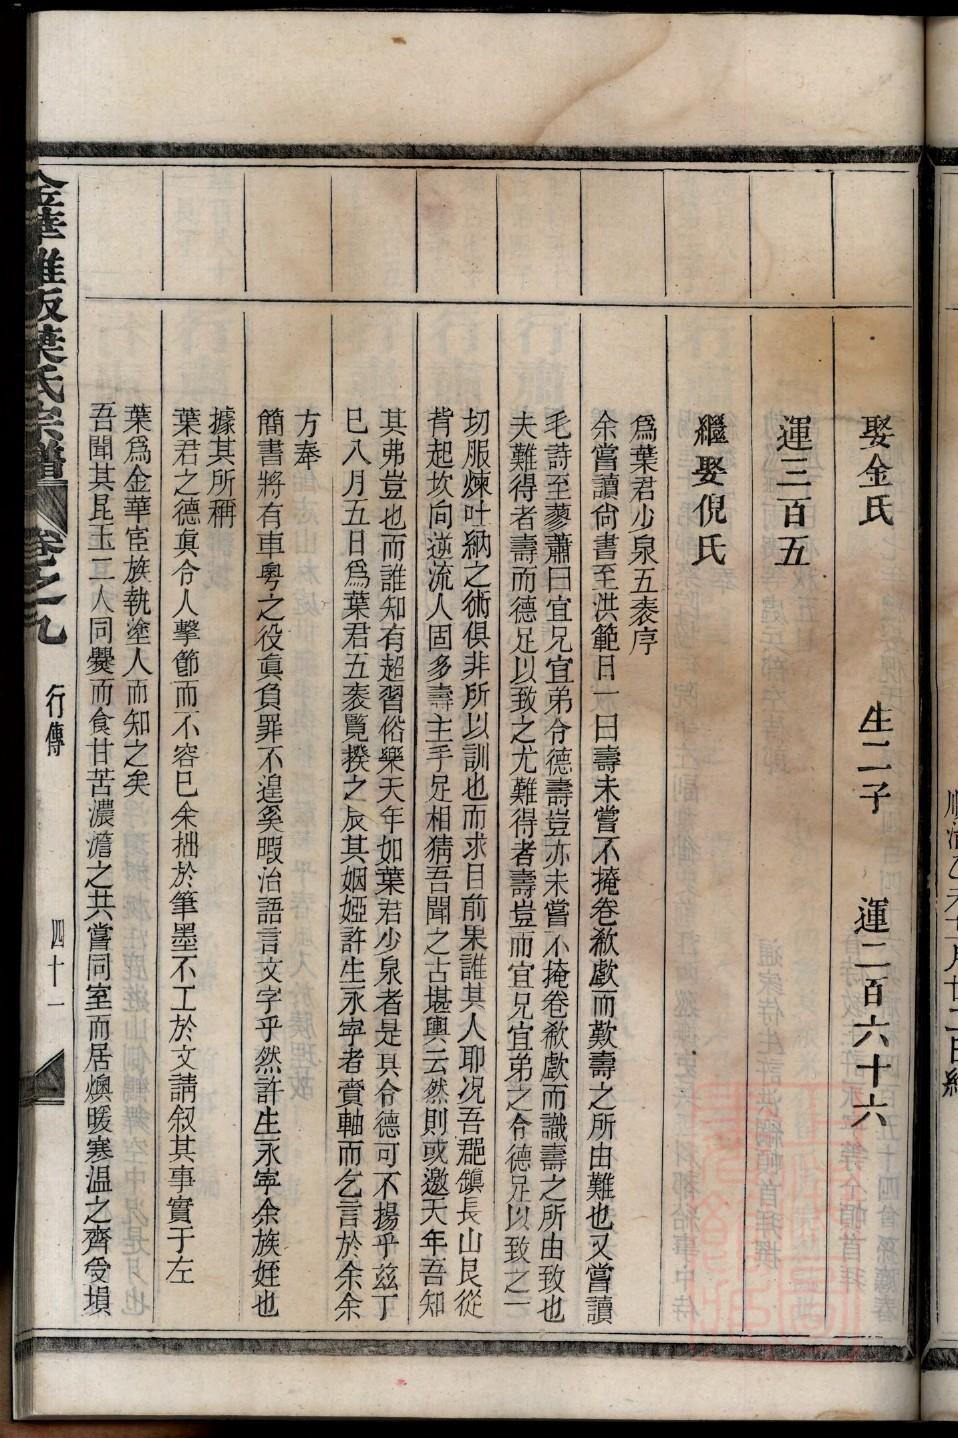 娶金氏　生二子　運二百六十六
運三百五
繼娶倪氏
爲葉君少泉五袠序
余嘗讀尙書至洪範日一曰壽未嘗不掩卷欷歔而歎壽之所由難也又嘗讀
毛詩至蓼蕭曰宜兄宜弟令德壽豈亦未嘗不掩卷欷歔而識壽之所由致也
夫難得者壽而德足以致之尤難得者壽豈而宜兄宜弟之令德足以致之一
切服煉吐納之術俱非所以訓也而求目前果誰其人耶况吾郡鎮長山艮從
背起坎向逆流人固多壽主手足相猜吾聞之古堪輿云然則或邀天年吾知
其弗豈也而誰知有超習俗樂天年如葉君少泉者是其令德可不揚乎茲丁
巳八月五日爲葉君五袠覽揆之辰其姻婭許生永寕者賫軸而乞言於余余
方奉
簡書將有車粤之役眞負罪不遑奚暇治語言文字乎然許生永寕余族姪也
據其所稱
葉君之德眞令人擊節而不容已余拙於筆墨不工於文請叙其事實于左
葉爲金華宦族執塗人而知之矣
吾聞其昆玉二人同爨而食甘苦濃澹之共嘗同室而居燠暖寒温之齊受塤
金華雅畈葉氏宗譜　卷之九　行傳　四十一